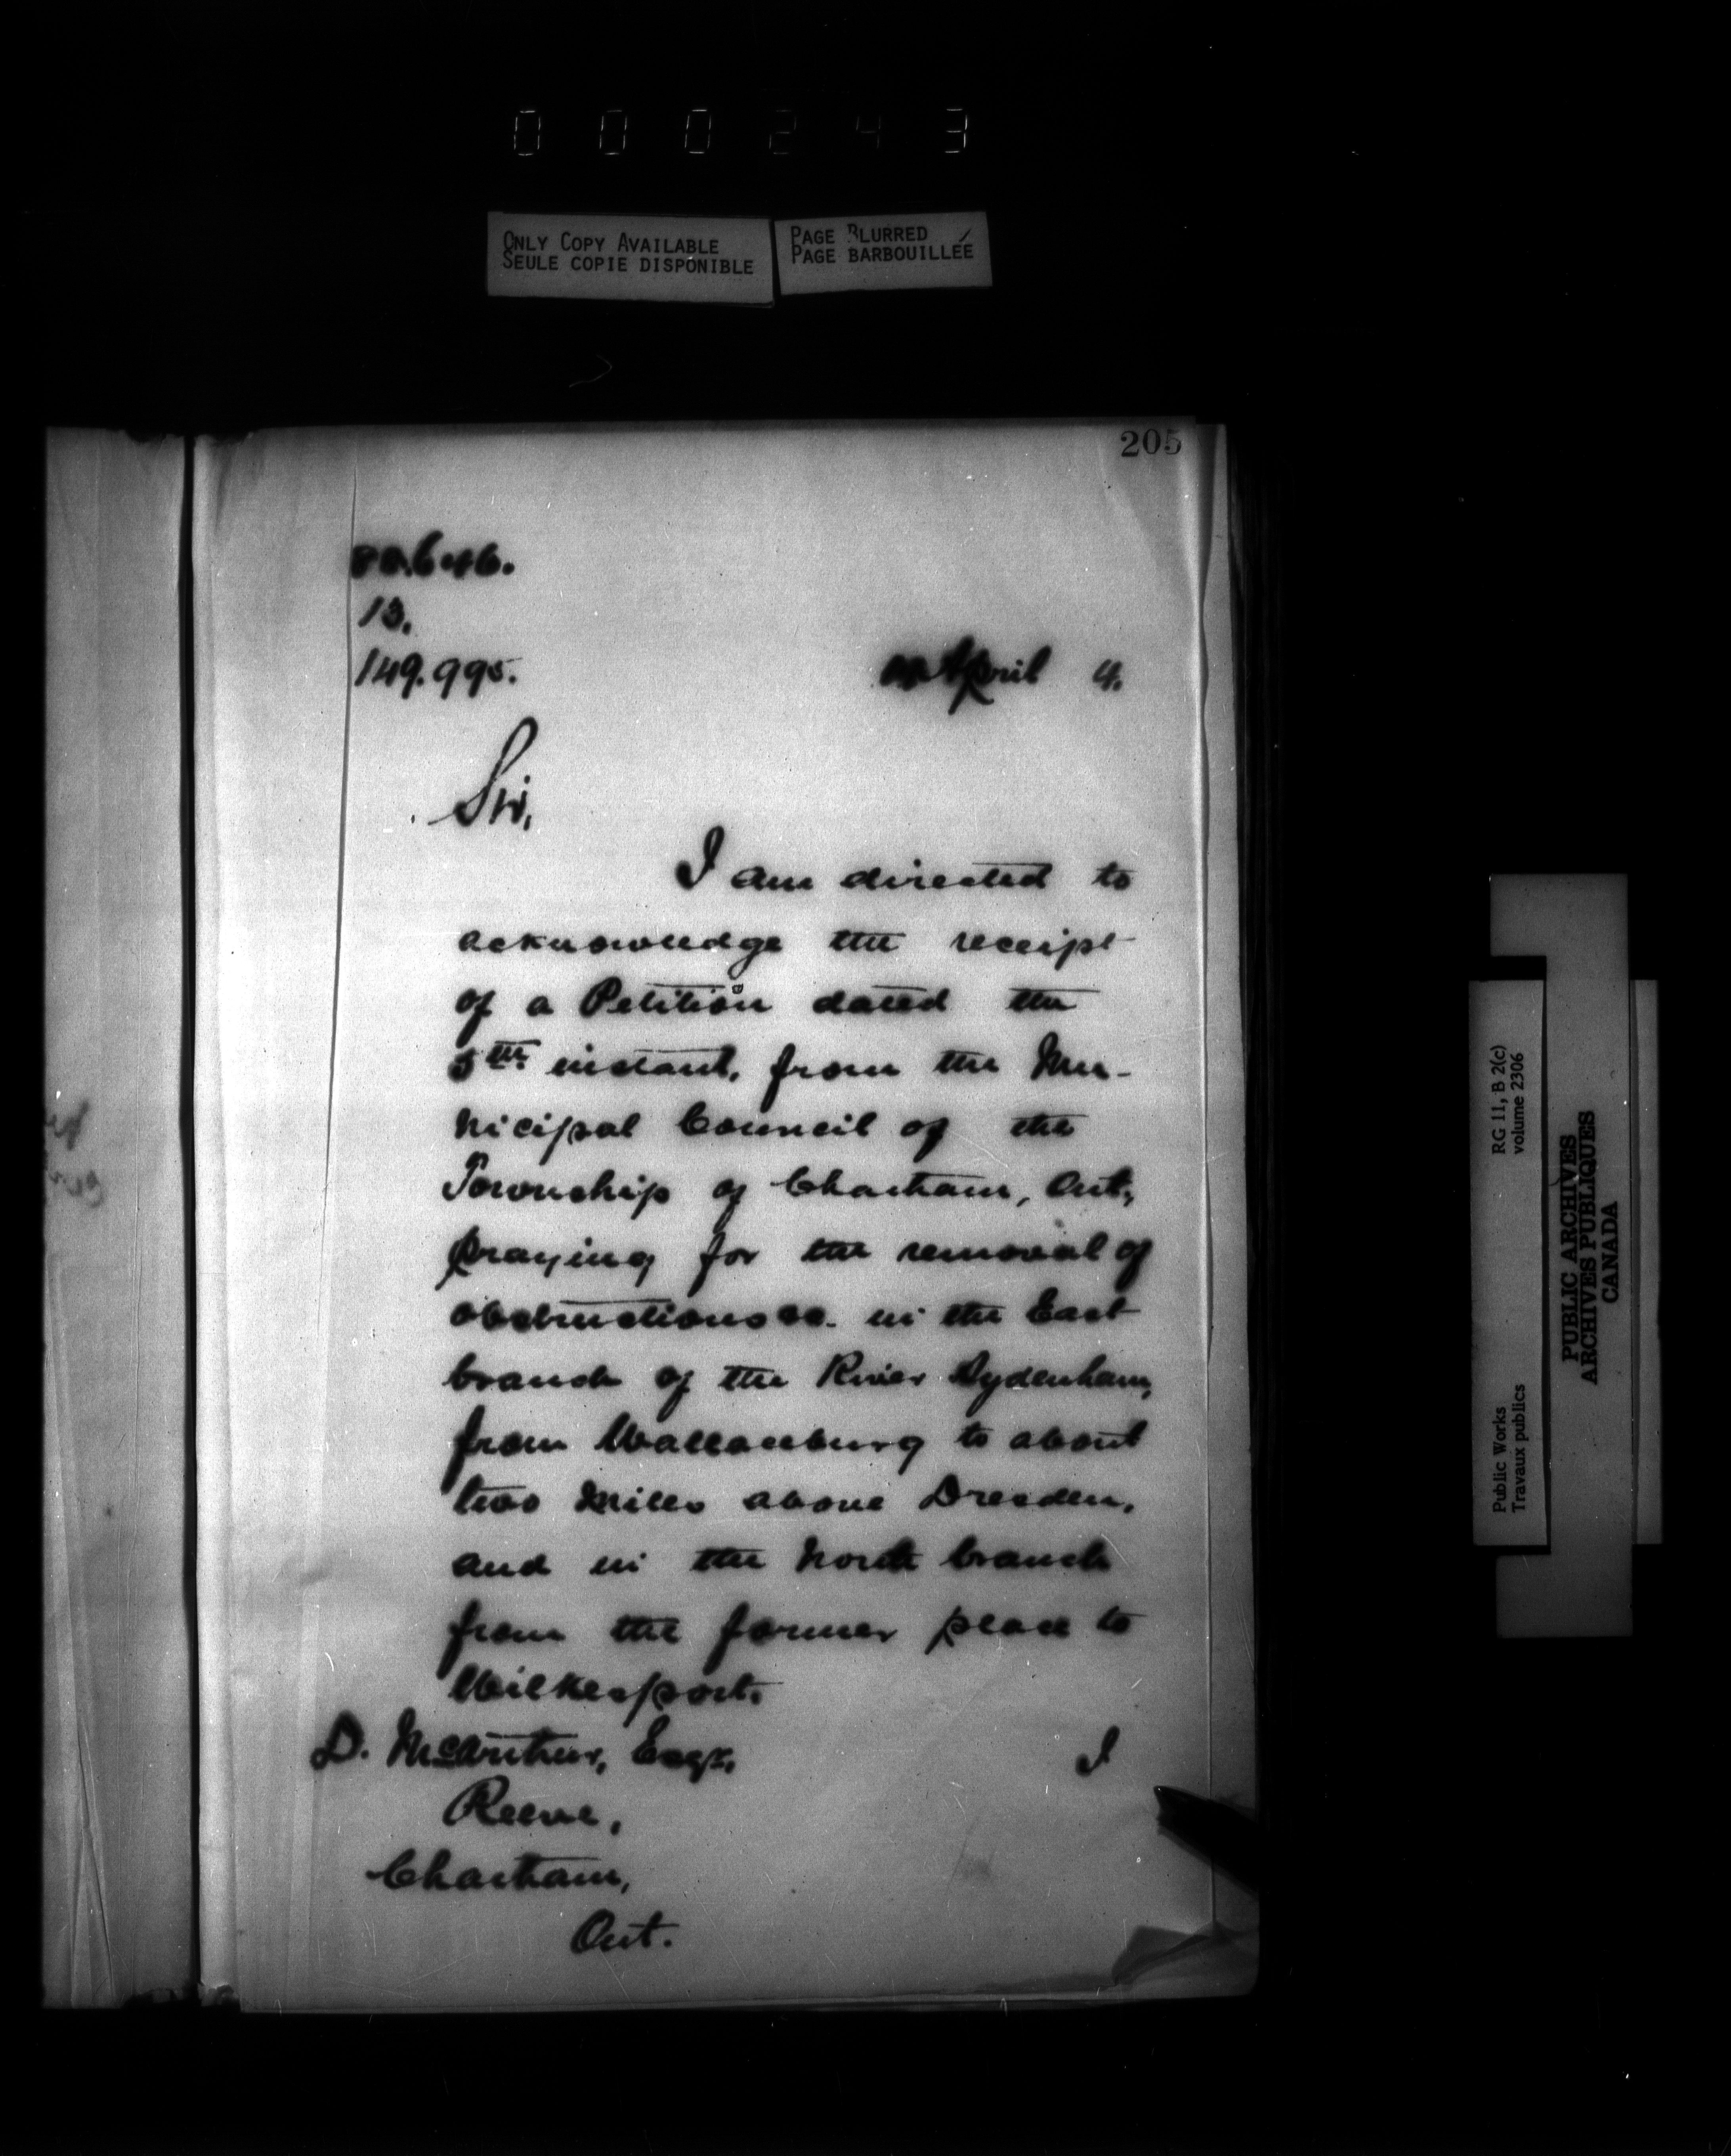 000243
ONLY COPY AVAILABLE
SEULE COPIE DISPONIBLE
PAGE BLURRED
PAGE BARBOUILLÉE
205
13.
149.995.
April 4.
Sir,
I am directed to
acknowledge the receipt
of a Petition dated the
5th instant, from the Mu-
nicipal Council of the
Township of Chatham, Ont,
praying for the removal of
obstructions &c. in the East
branch of the River Sydenham,
from Wallaceburg to about
two miles above Dresden,
and in the North branch
from the former place to
Wilkesport.
I
D. McArthur, Esqr,
Reeve,
Chatham,
Ont.
RG 11, B 2(c)
volume 2306
Public Works
Travaux publics
PUBLIC ARCHIVES
ARCHIVES PUBLIQUES
CANADA